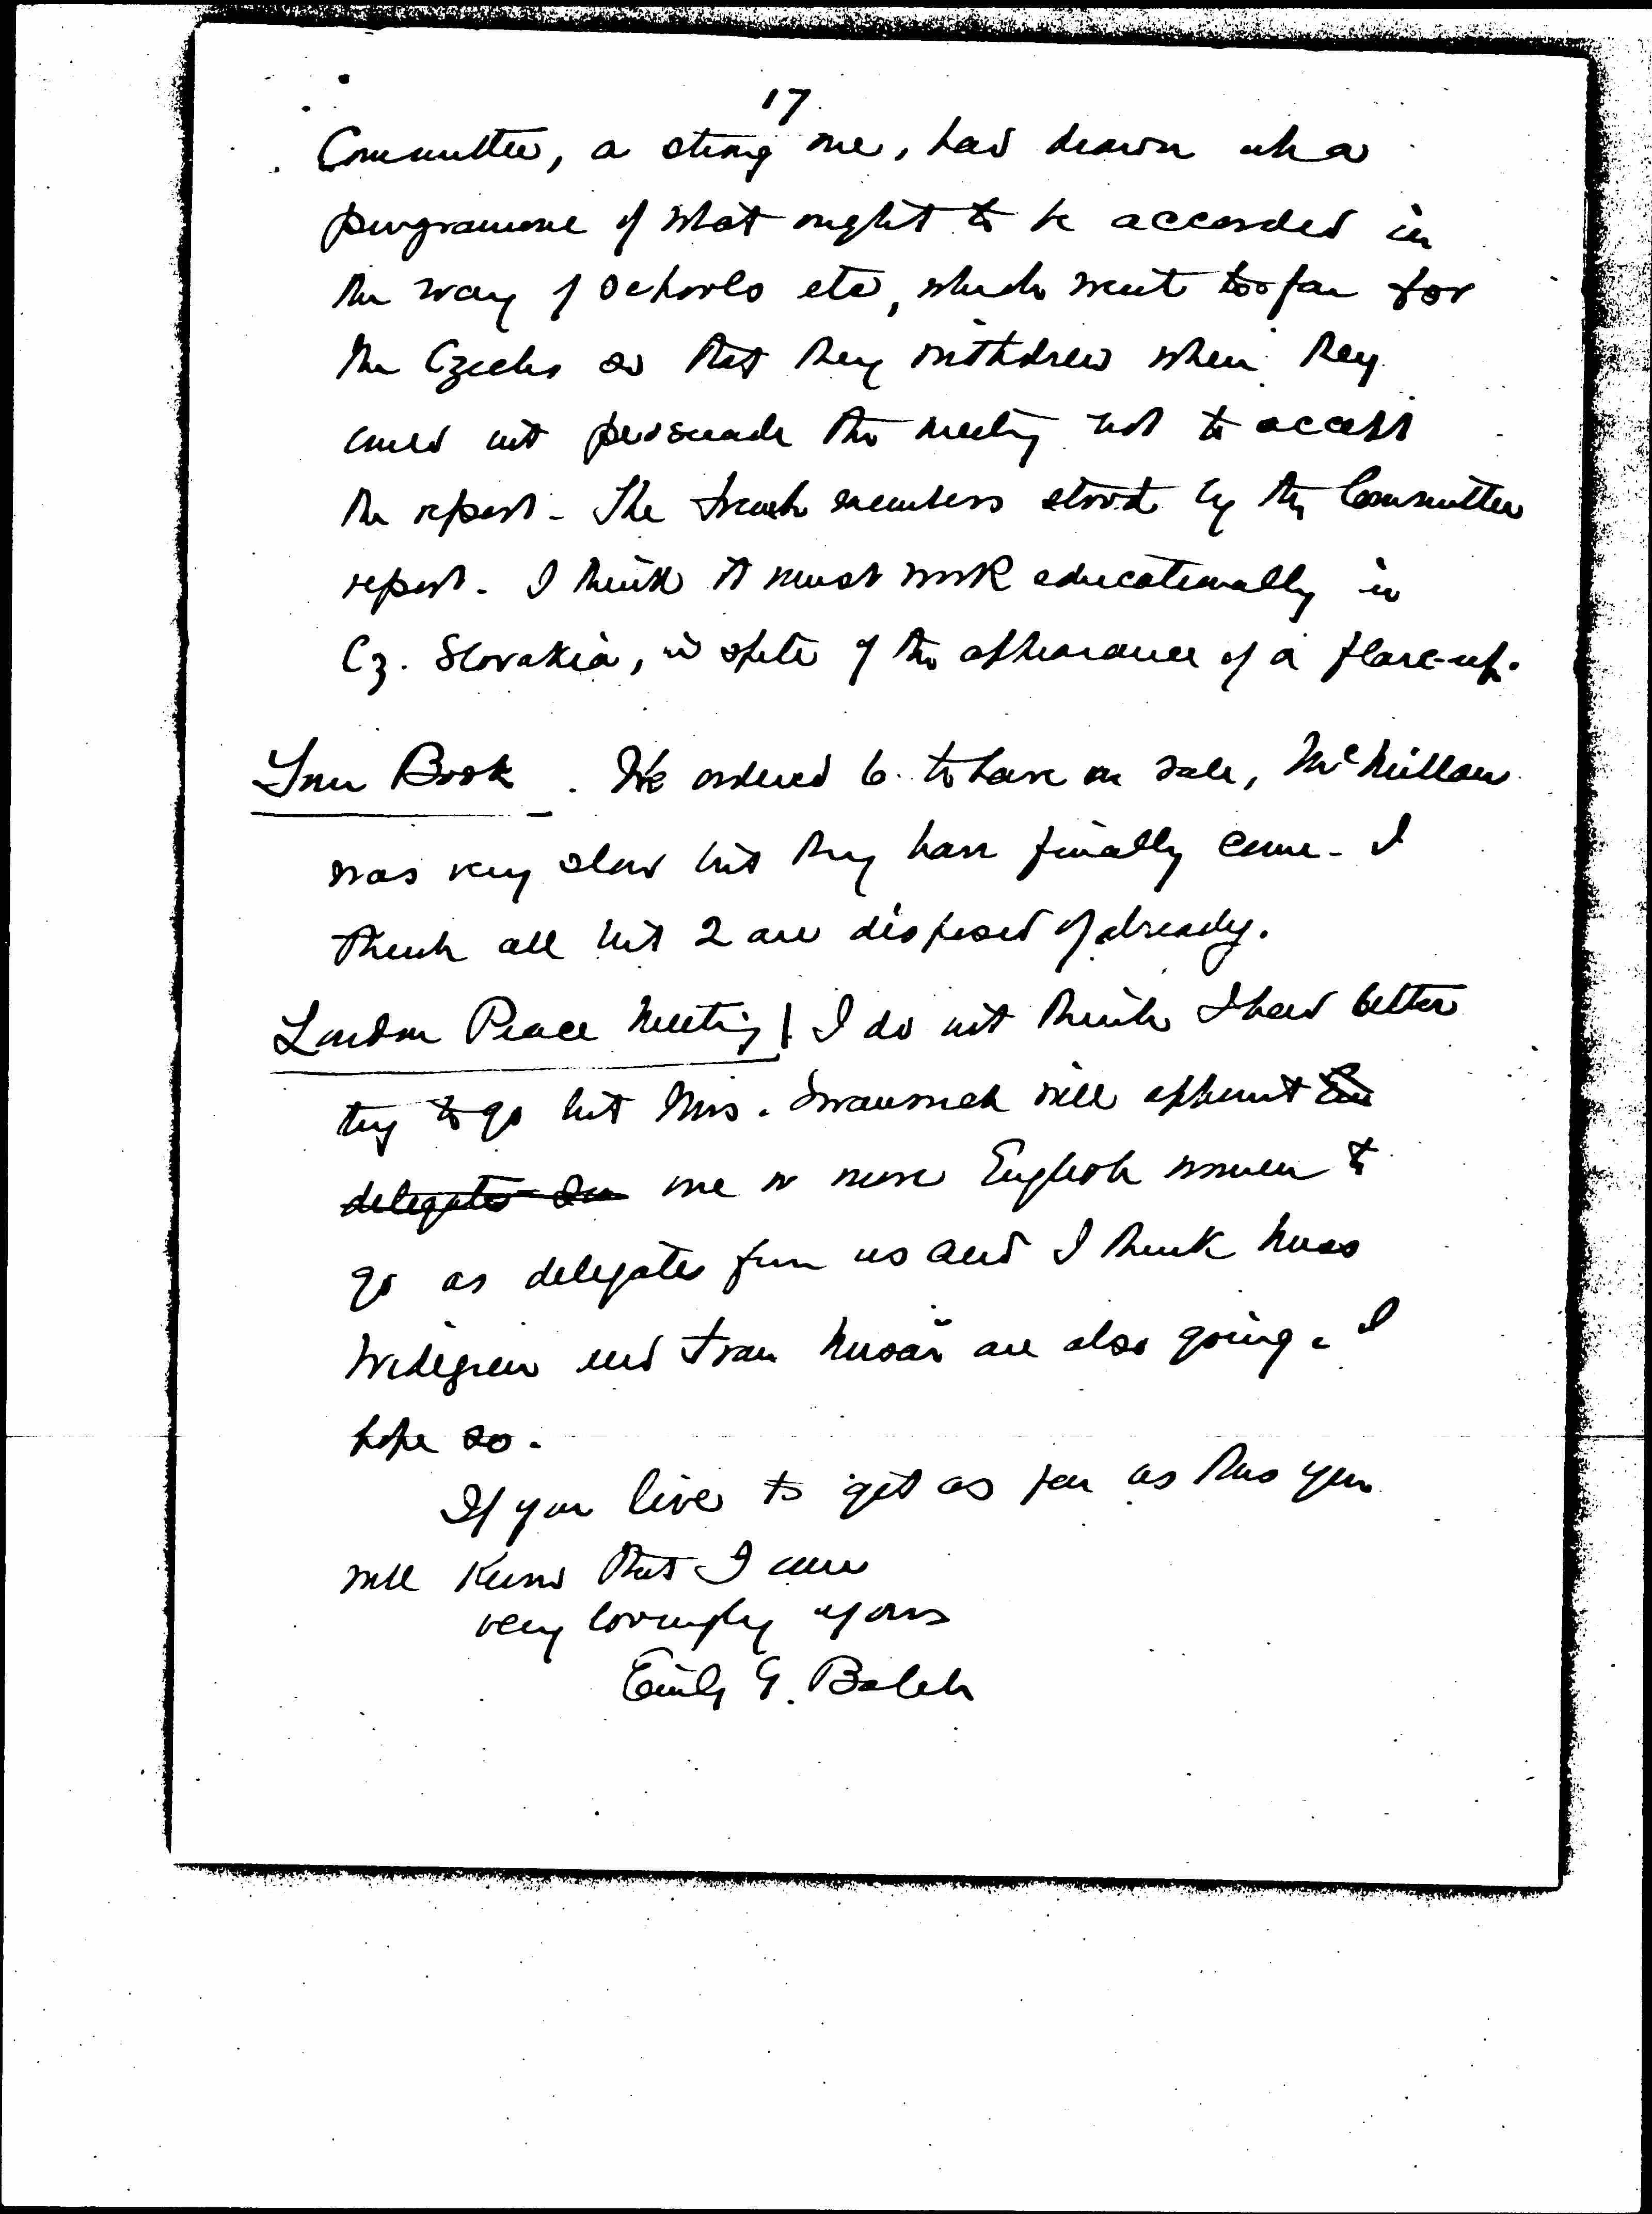 17
Committee, a strong one, had drawn up a
programme of what ought to be accorded in
the way of schools etc, which went too far for
the Czechs so that they withdrew when they
could not persuade the meeting not to accept
the report - The French members stood by the Committee
report - I think it must work educationally in
Cz. Slovakia, in spite of the appearance of a flare-up.
Your Book. We ordered 6 to have on sale, McMillan
was very slow but they have finally come - I
think all but 2 are disposed of already.
London Peace Meeting | I do not think I had better
try to go but Mrs. Swanwick will appoint
delegates one or more English women to
go as delegates from us and I think Miss
Widegren and Frau are also going - I
hope so.
If you live to get as far as this you
will know that I am
very lovingly yours
Emily G. Balch